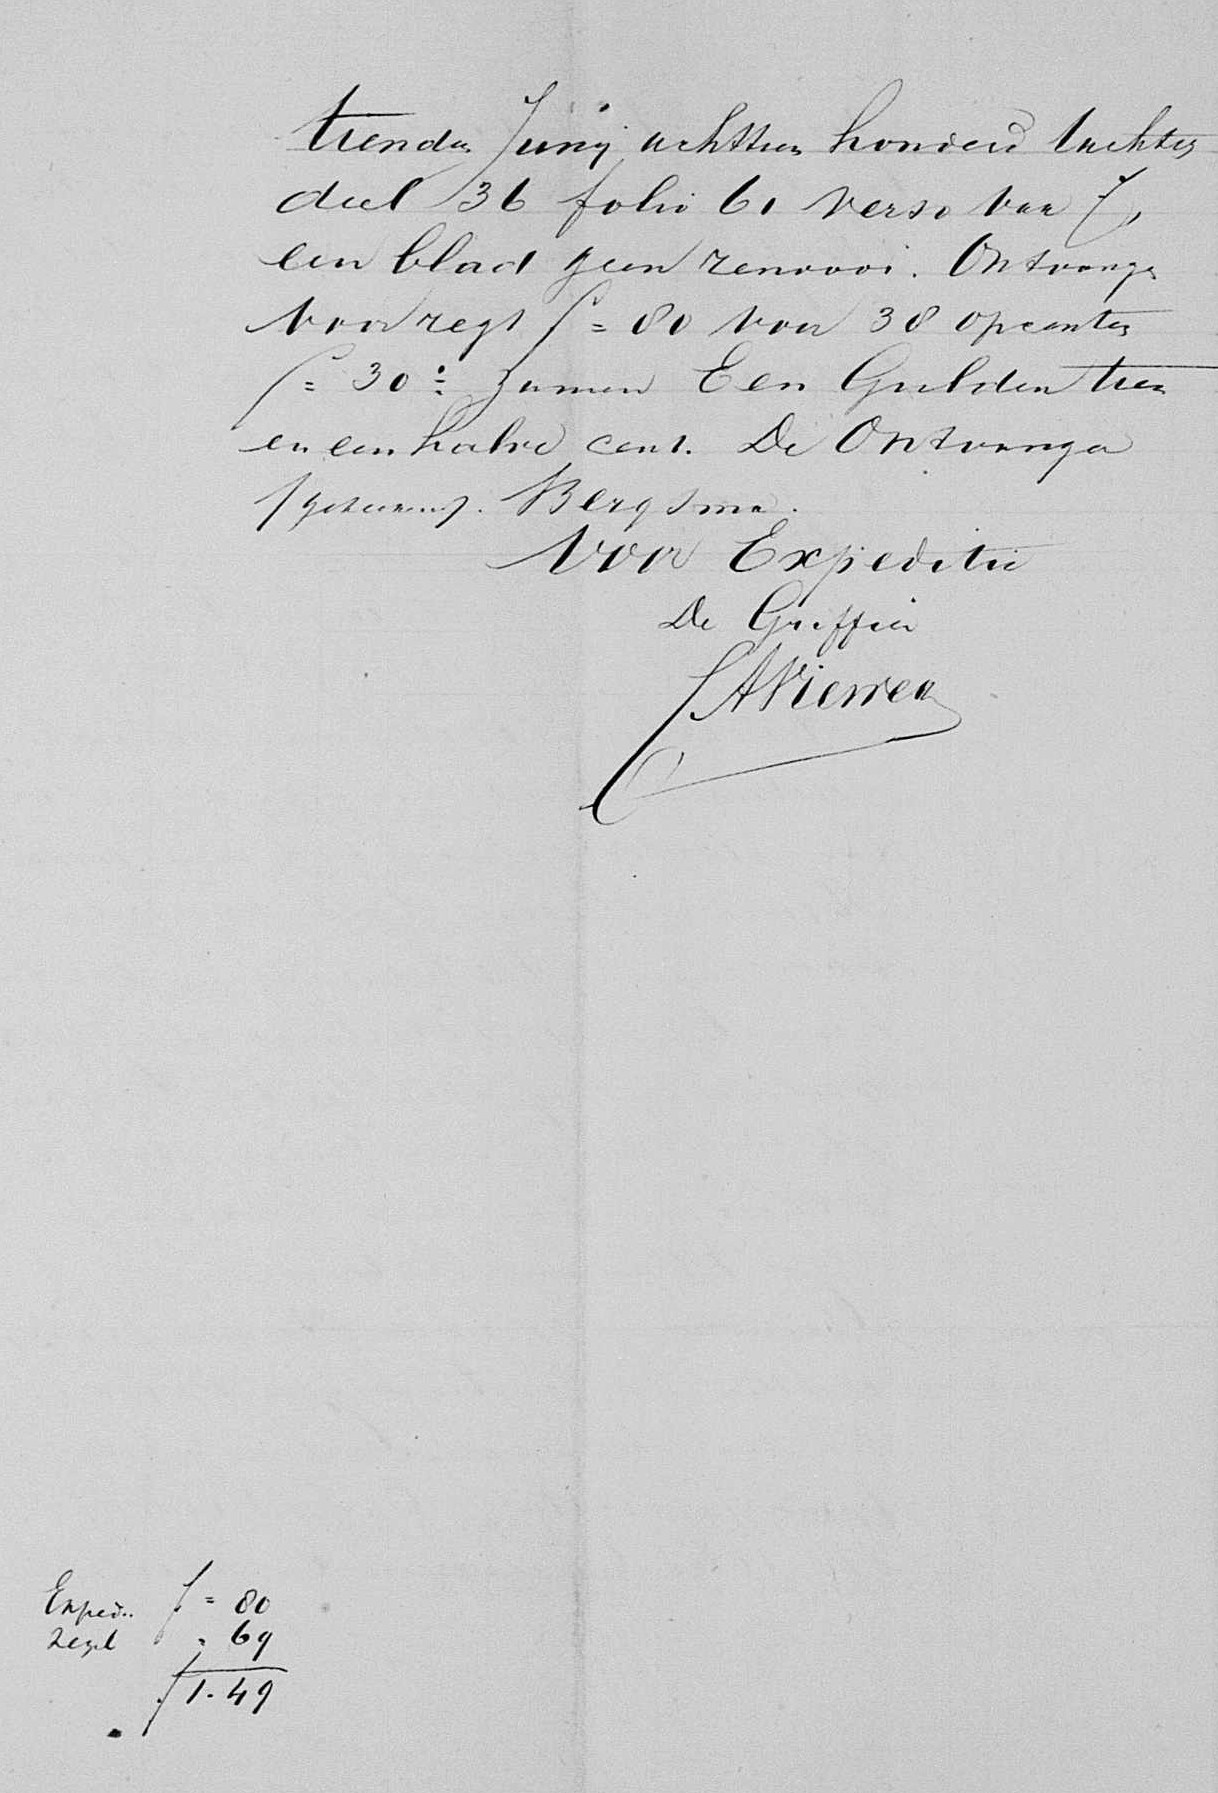 tienden Junij achttien honderd tachtig
deel 36 folio 61 verso vak 7,
een blad geen renvooi. Ontvangen
voor regt f = 80 voor 38 opcenten
f = 30: zamen Een Gulden tien
en een halve cent. De Ontvanger
/geteekend/. Bergsma.
Voor Expeditie
De Griffier
Exped. f = 80
Zegel " 69
f 1.49